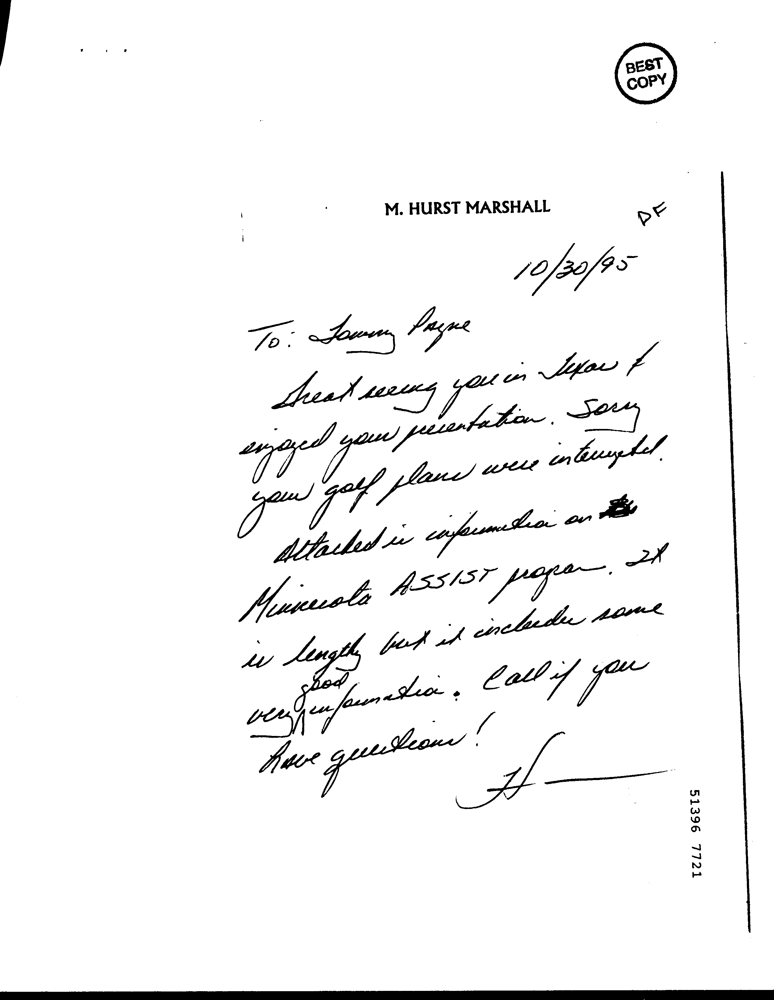 BEST
COPY
M. HURST MARSHALL
DF
10/30/95
To: Tommy Payne
Great seeing you in Texas &
enjoyed your presentation. Sorry
your golf plans were interrupted.
Attached is information on
Minnesota ASSIST program. It
is lengthy but it includes some
very good information. Call if you
have questions!
H
51396 7721